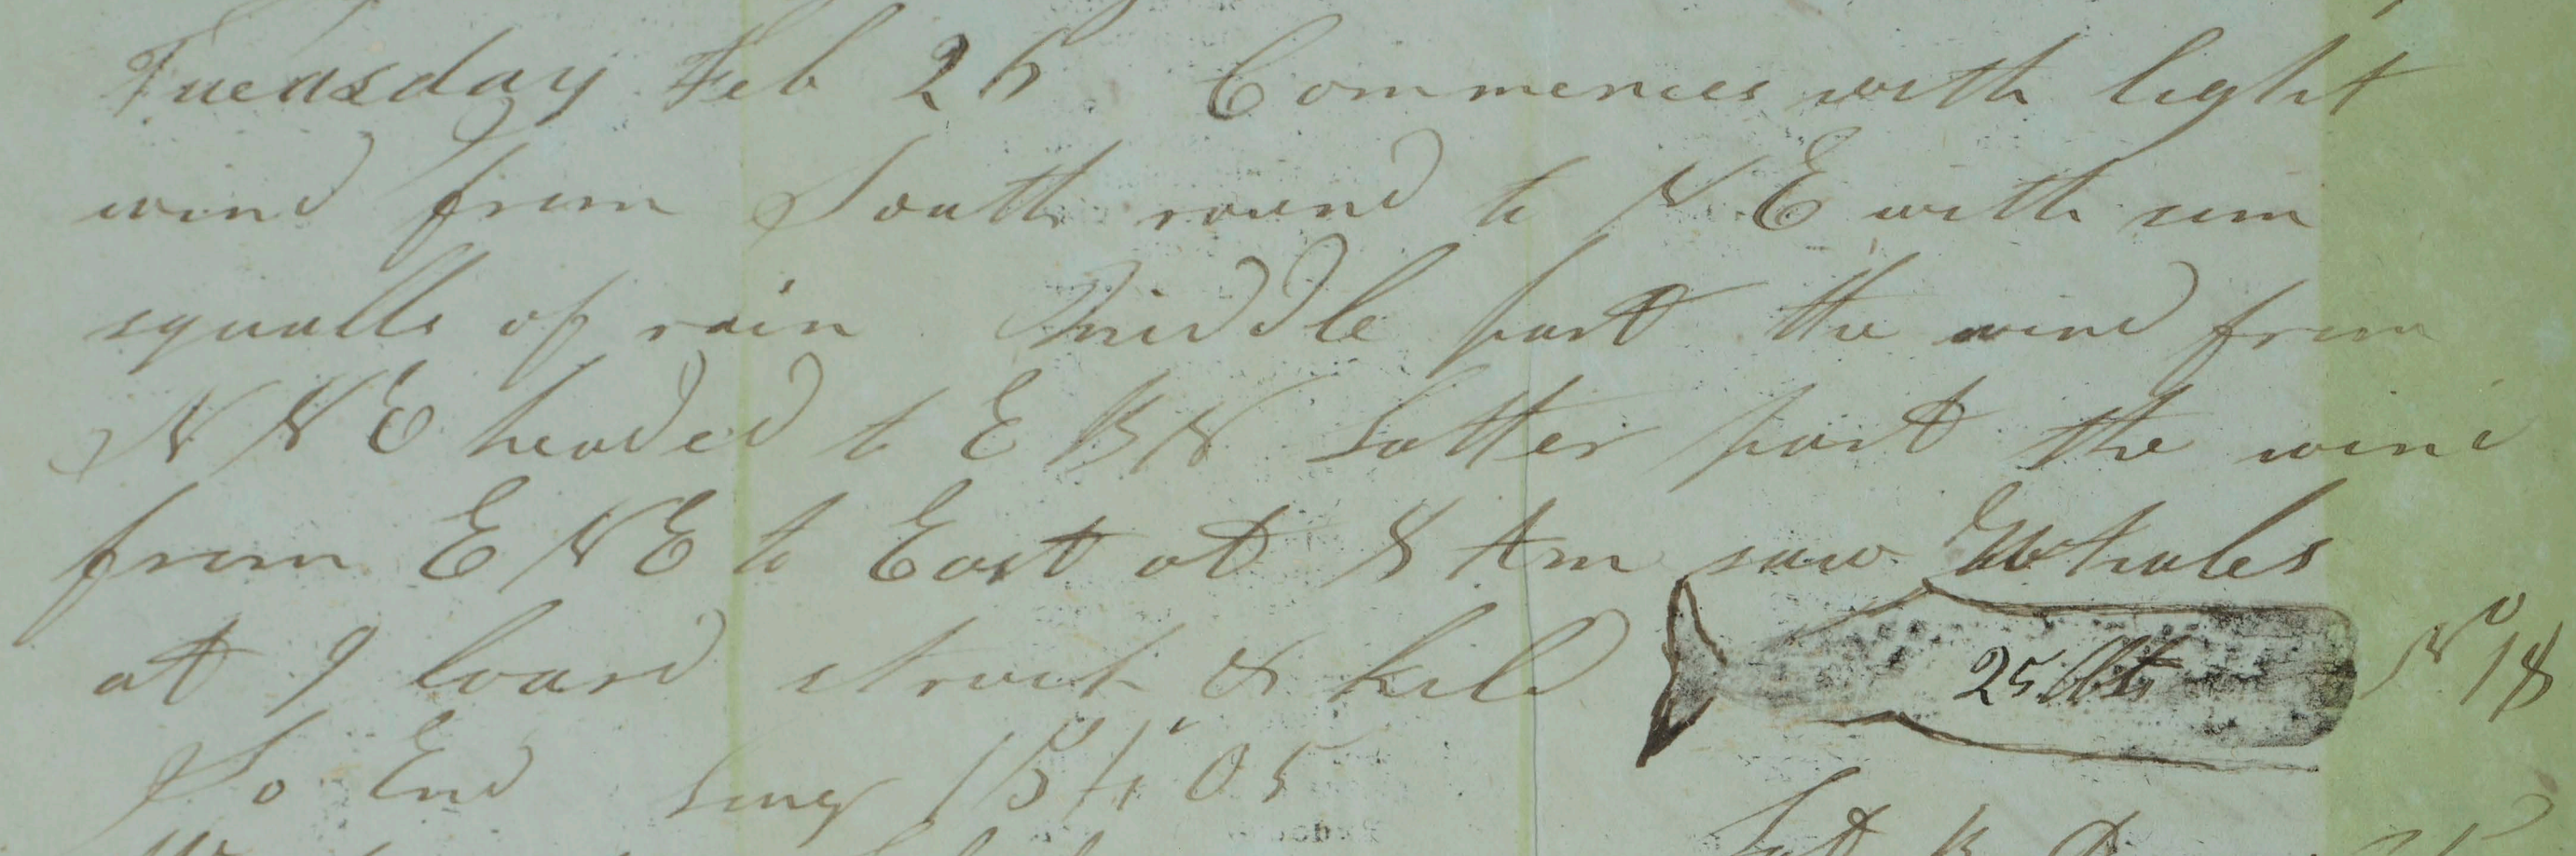 Tueasday Feb 25 Commences with light
wind from South round to N E with sum
squalls of rain Middle part the wind from
N N E headed to E B N Latter part the wind
from E N E to East at 8 Am saw Whales
at 9 loard struck & kild 25 bbls No 18
So End Long 154° 05